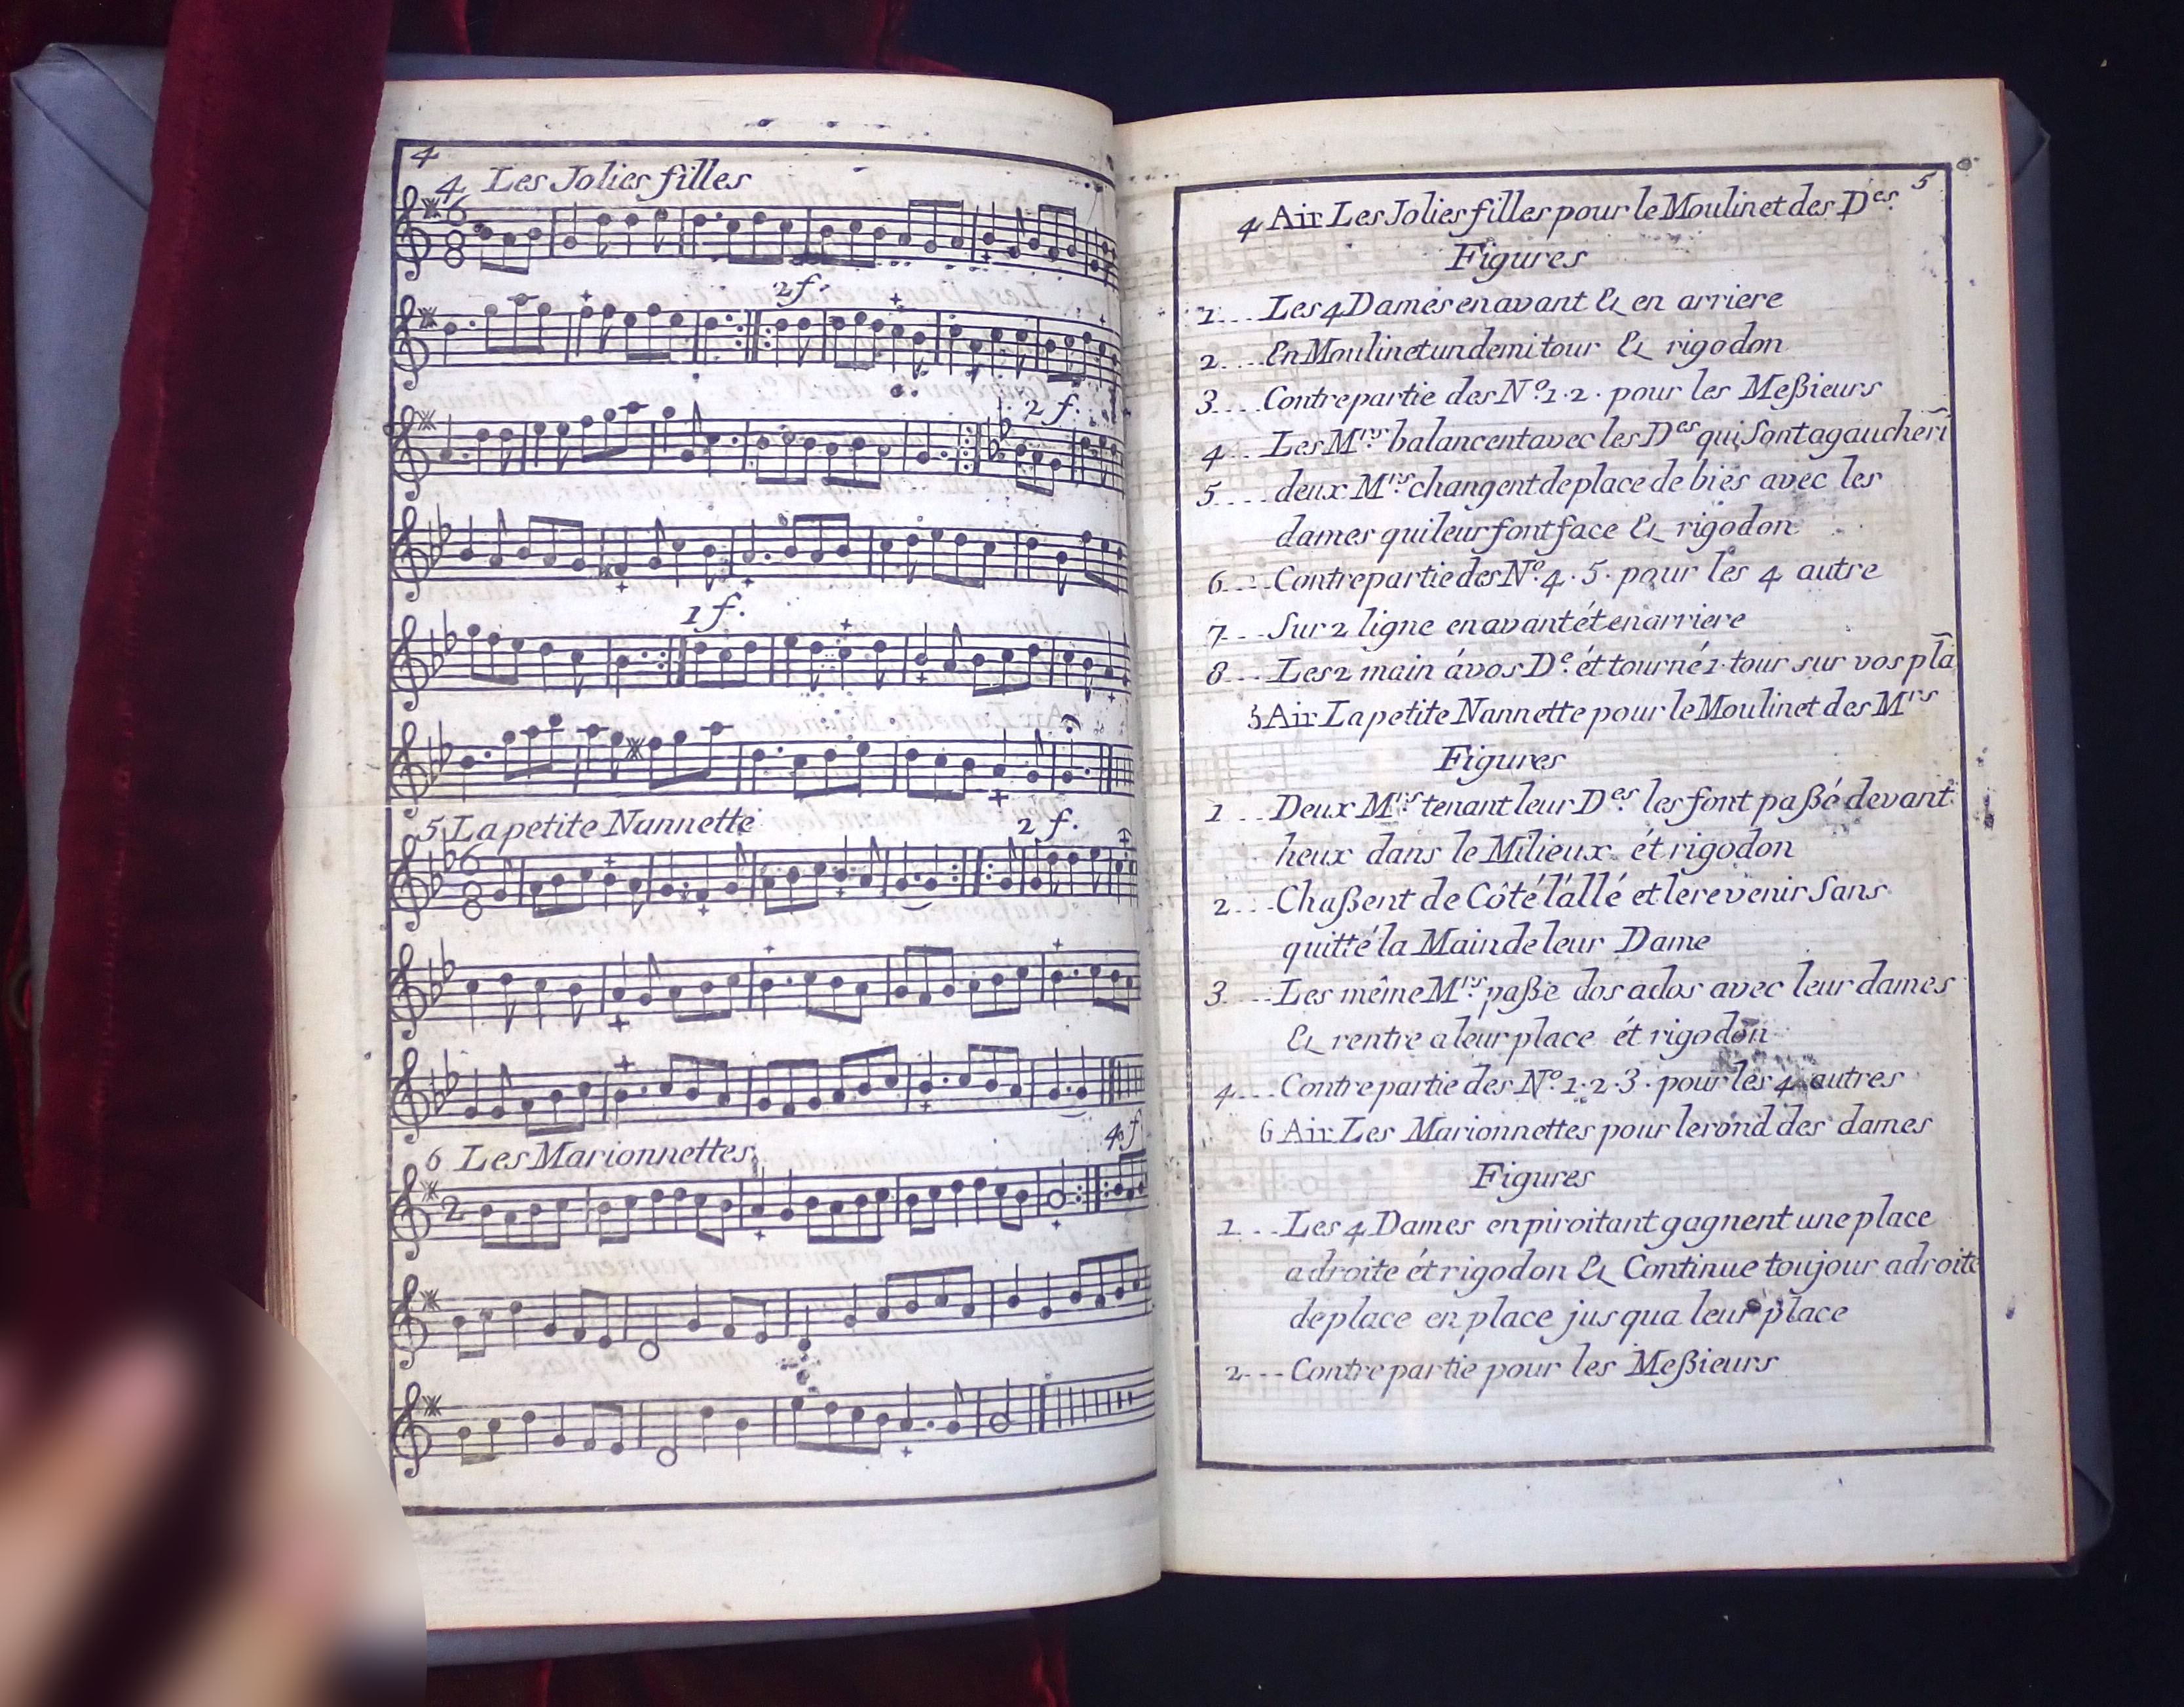 4
4 Les Jolies filles
6
8
2 f.
2 f.
1 f.
5 La petite Nannette
2 f.
6
8
6 Les Marionnettes
4 f
2
5
4 Air Les Jolies filles pour le Moulinet des Des.
Figures
1.... Les 4 Dames en avant & en arriere
2.... En Moulinet un demi tour & rigodon
3.... Contre partie des No. 1. 2. pour les Meßieurs
4... Les Mrs. balancent avec les Des qui sont a gauche ri
5.... deux Mrs. changent de place de biés avec les
dames qui leur font face & rigodon
6.... Contre partie des No. 4. 5. pour les 4 autre
7... Sur 2 ligne en avant ét en arriere
8... Les 2 main á vos De. ét tourné 1 tour sur vos pla
5 Air La petite Nannette pour le Moulinet des Mrs
Figures
1... Deux Mrs. tenant leur Des. les font paßé devant
heux dans le Milieux ét rigodon
2... Chaßent de Côté l'allé et le revenir sans
quitté la Main de leur Dame
3... Les même Mrs. paßé dos a dos avec leur dames
& rentre a leur place ét rigodon
4... Contre partie des No. 1. 2. 3. pour les 4 autres
6 Air Les Marionnettes pour le rond des dames
Figures
1... Les 4 Dames en piroitant gagnent une place
a droite ét rigodon & Continue toujour a droite
de place en place jus qua leur place
2--- Contre partie pour les Meßieurs